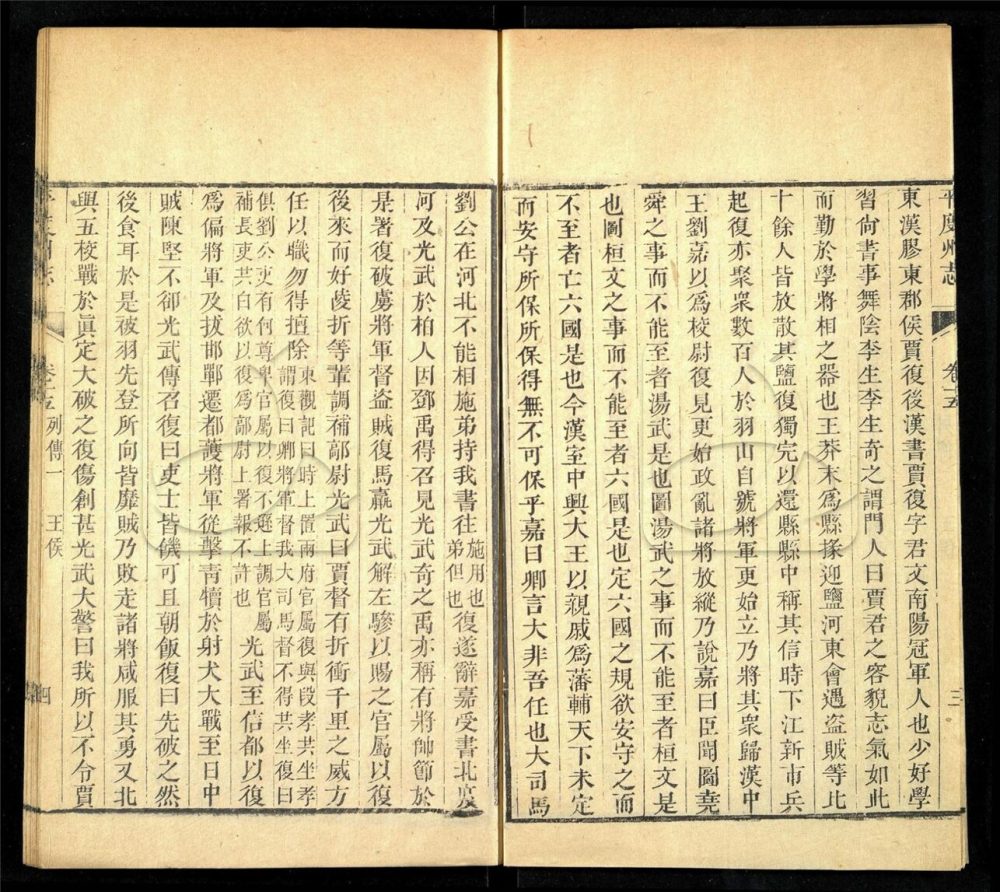 平度州志
卷二五
三
東漢膠東郡侯賈復後漢書賈復字君文南陽冠軍人也少好學
習尙書事舞陰李生李生奇之謂門人曰賈君之容貌志氣如此
而勤於學將相之器也王莽末爲縣掾迎鹽河東會遇盜賊等比
十餘人皆放散其鹽復獨完以還縣縣中稱其信時下江新市兵
起復亦聚衆數百人於羽山自號將軍更始立乃將其衆歸漢中
王劉嘉以爲校尉復見更始政亂諸將放縱乃說嘉曰臣聞圖堯
舜之事而不能至者湯武是也圖湯武之事而不能至者桓文是
也圖桓文之事而不能至者六國是也定六國之規欲安守之而
不至者亡六國是也今漢室中興大王以親戚爲藩輔天下未定
而安守所保所保得無不可保乎嘉曰卿言大非吾任也大司馬
劉公在河北不能相施弟持我書往施用也弟但也復遂辭嘉受書北度
河及光武於柏人因鄧禹得召見光武奇之禹亦稱有將帥節於
是署復破虜將軍督盜賊復馬羸光武解左驂以賜之官屬以復
後來而好陵折等輩調補鄗尉光武曰賈督有折衝千里之威方
任以職勿得擅除東觀記曰時上置兩府官屬復與段孝共坐孝
謂復曰卿將軍督我大司馬督不得共坐復曰
俱劉公吏有何尊卑官屬以復不遜上調官屬
補長吏共白欲以復爲鄗尉上署報不許也光武至信都以復
爲偏將軍及拔邯鄲遷都護將軍從擊青犢於射犬大戰至日中
賊陳堅不卻光武傳召復曰吏士皆饑可且朝飯復曰先破之然
後食耳於是被羽先登所向皆靡賊乃敗走諸將咸服其勇又北
與五校戰於眞定大破之復傷創甚光武大驚曰我所以不令賈
卷二五 列傳一 王侯
四